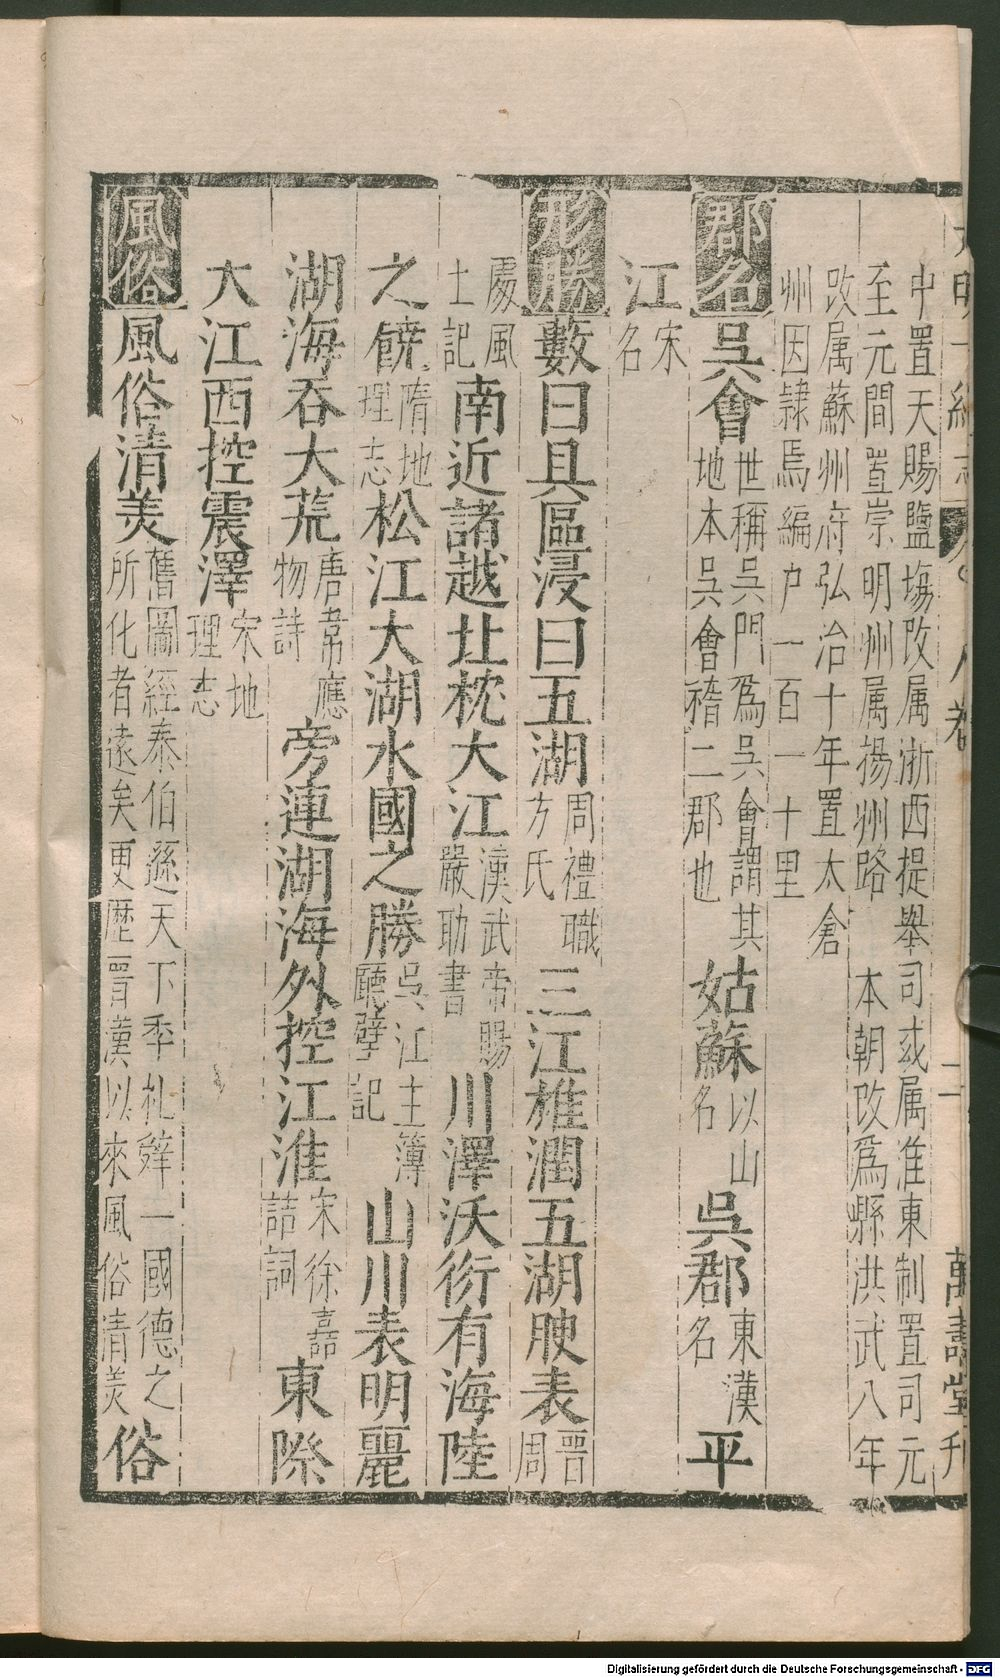 大明一統志卷之八 蘇 二 萬壽堂刊
中置天賜鹽塲改属浙西提舉司或属淮東制置司元
至元間置崇明州属揚州路 本朝改爲縣洪武八年
改属蘇州府弘治十年置太倉
州因隸焉編户一百一十里
郡名 吳會 世稱吳門爲吳會謂其
地本吳會稽二郡也 姑蘇 以山
名 吳郡 東漢
名 平
江 宋
名
形勝 藪曰具區浸曰五湖 周禮職
方氏 三江椎潤五湖腴表 晋周
處風
土記 南近諸越北枕大江 漢武帝賜
嚴助書 川澤沃衍有海陸
之饒 隋地
理志 松江大湖水國之勝 吳江主簿
聽壁記 山川表明麗
湖海吞大荒 唐韋應
物詩 旁連湖海外控江淮 宋徐嘉
喆詞 東際
大江西控震澤 宋地
理志
風俗 風俗清美 舊圖經泰伯遜天下季札辤一國德之
所化者遠矣更歴晋漢以來風俗清美 俗
Digitalisierung gefördert durch die Deutsche Forschungsgemeinschaft - DFG